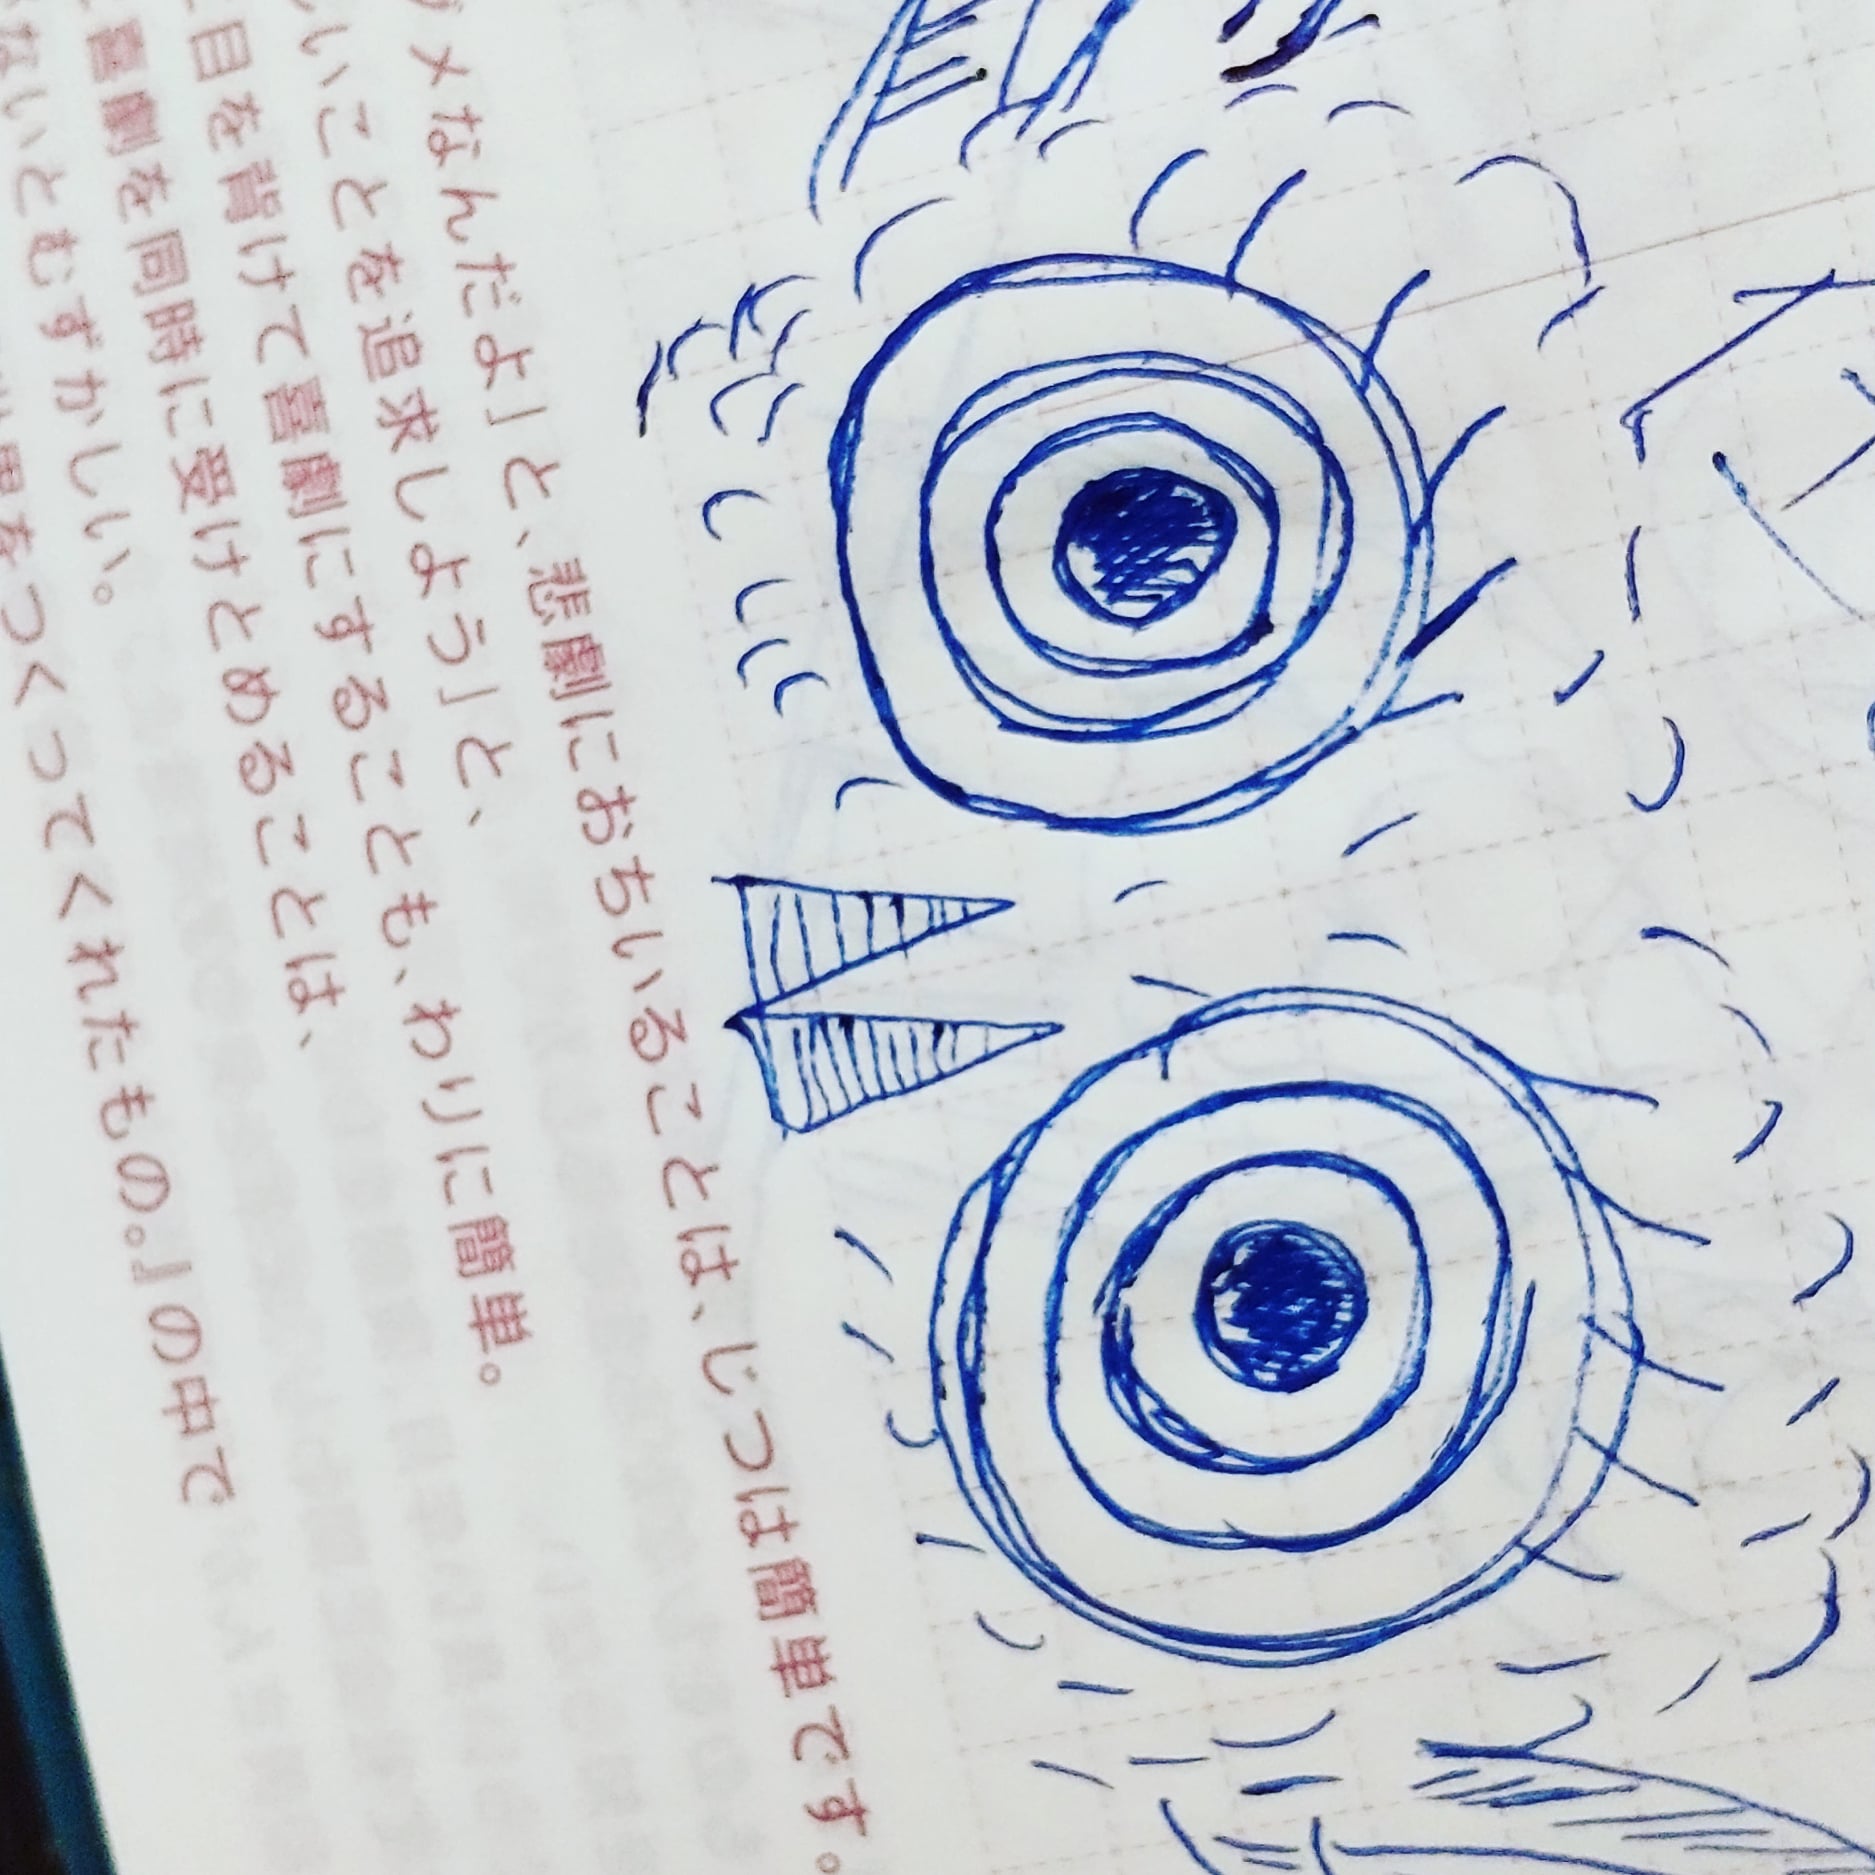 メなんだよ」と、悲劇におちいることは、じつは簡単です。
いことを追求しよう」と、
目を背けて喜劇にすることも、わりに簡単。
喜劇を同時に受けとめることは、
ないとむずかしい。
界をつくってくれたもの。』の中で